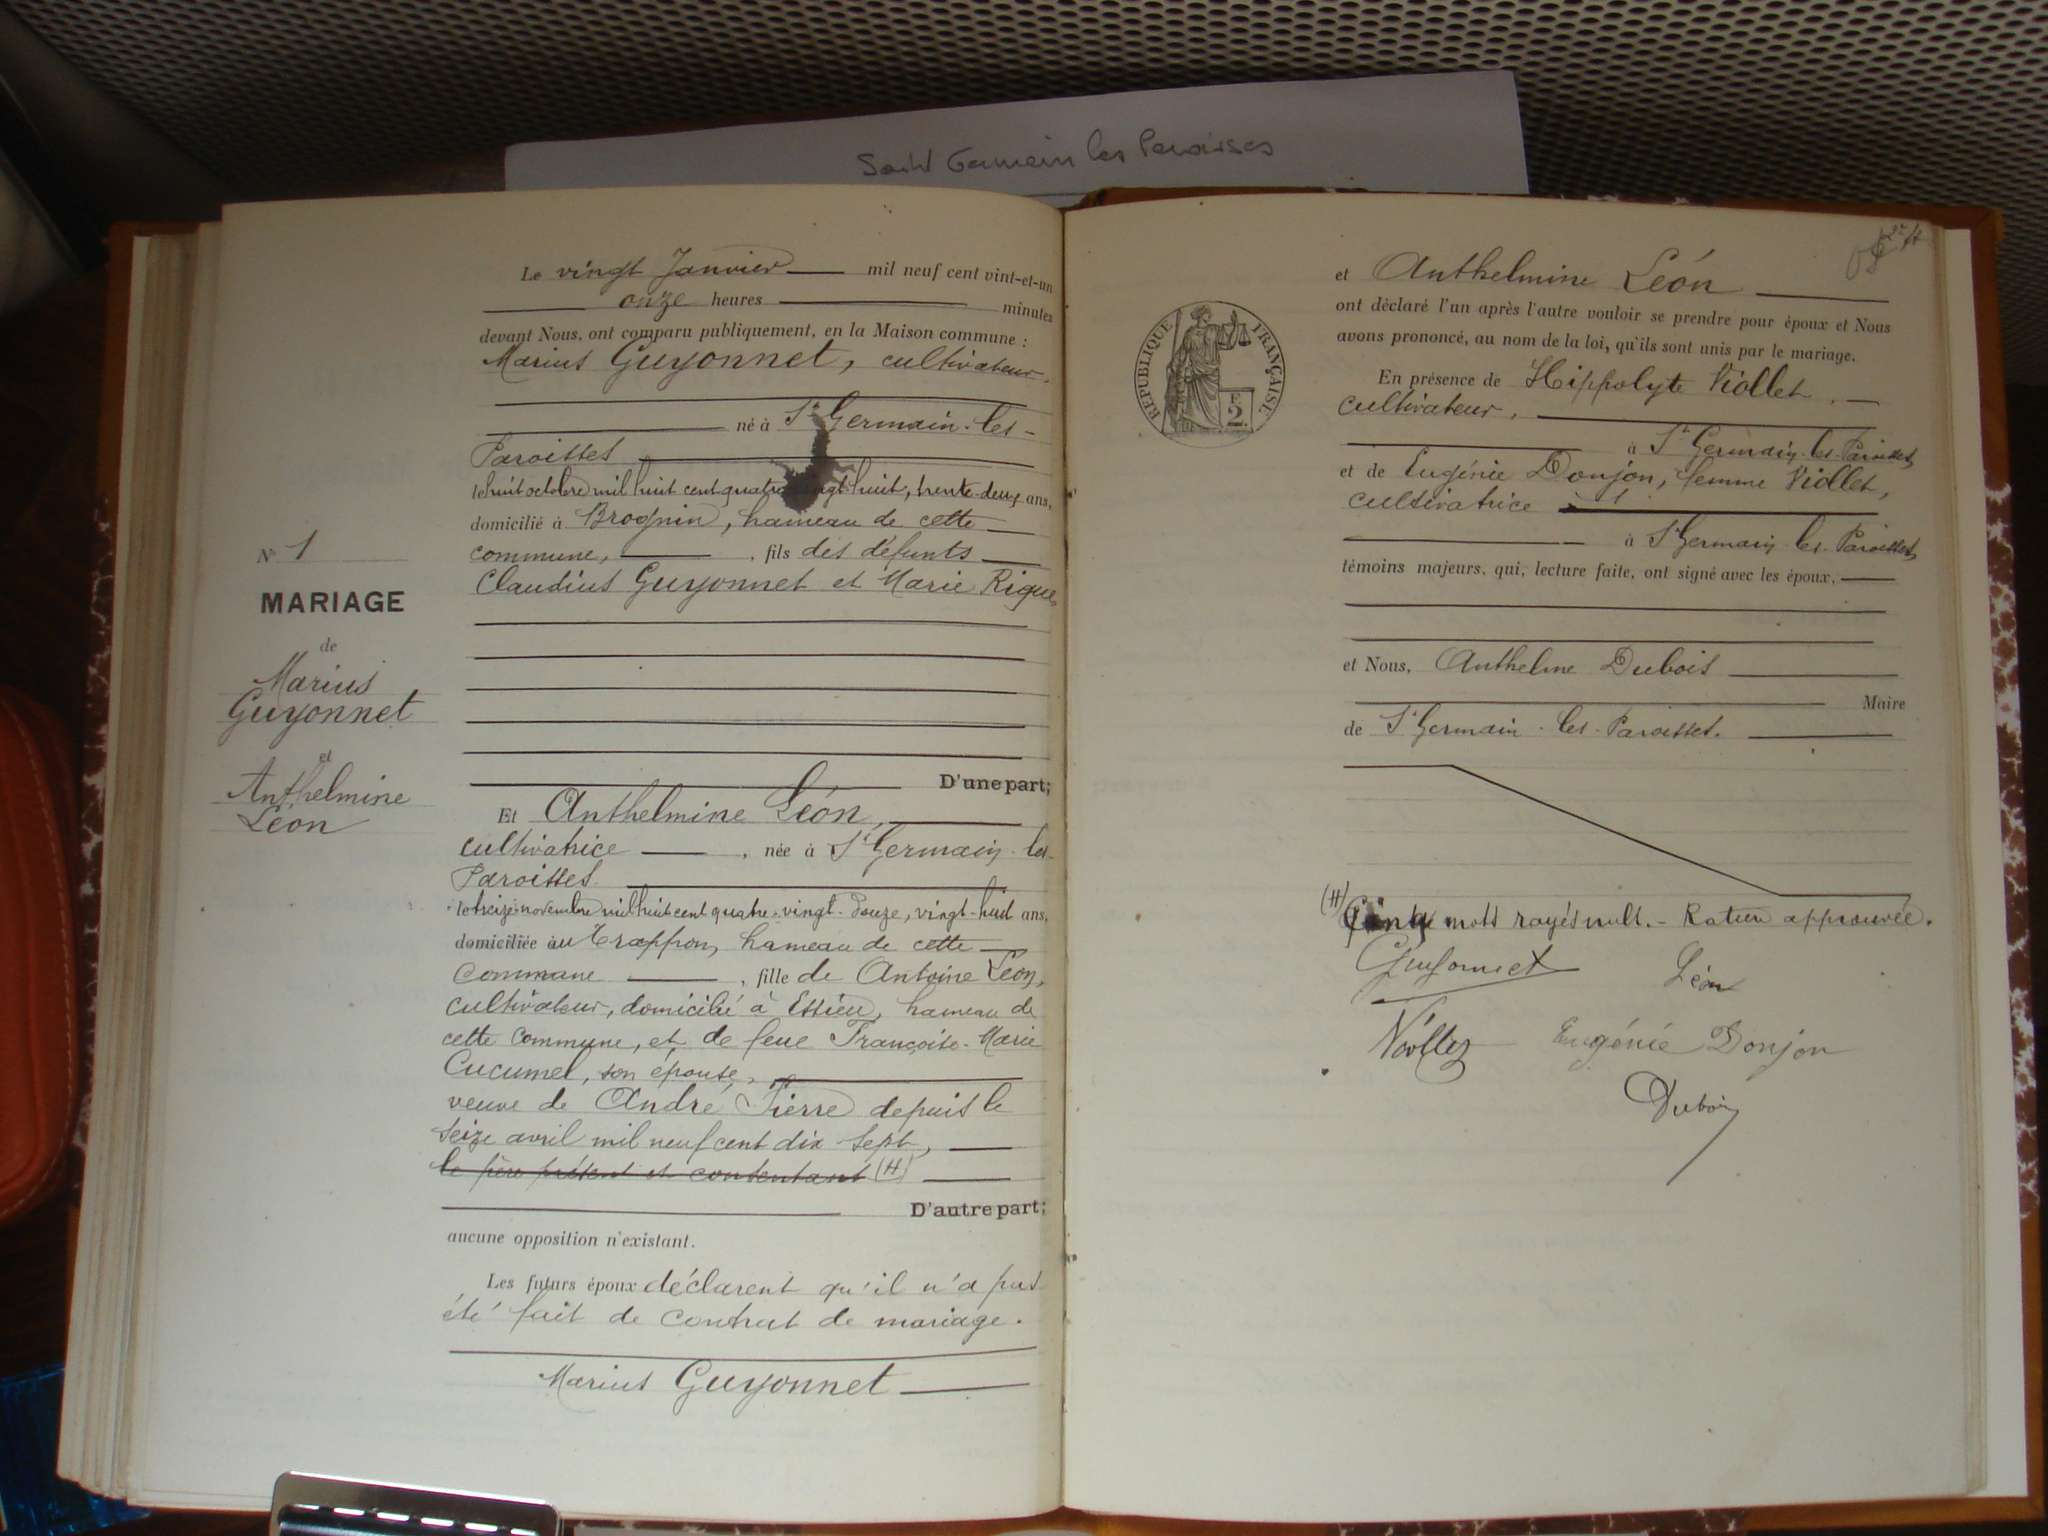 Saint Germain les Paroisses
Le vingt Janvier mil neuf cent vint-et-un
onze heures minutes
devant Nous, ont comparu publiquement, en la Maison commune :
Marius Guyonnet, cultivateur,
né à St Germain-les-
Paroisses
le huit octobre mil huit cent quatre vingt-huit, trente-deux ans,
domicilié à Brognin, hameau de cette
commune, , fils des défunts
Claudius Guyonnet et Marie Rigue,
D'une part;
Et Anthelmine Léon,
cultivatrice , née à St Germain-les-
Paroisses
le treize novembre mil huit cent quatre-vingt-douze, vingt-huit ans,
domiciliée au Trappon, hameau de cette
commune , fille de Antoine Léon,
cultivateur, domicilié à Essieu, hameau de
cette commune, et de feue Françoise-Marie
Cucumel, son épouse,
veuve de André Pierre depuis le
seize avril mil neuf cent dix sept,
le père présent et consentant (H)
D'autre part;
aucune opposition n'existant.
Les futurs époux déclarent qu'il n'a pas
été fait de contrat de mariage.
Marius Guyonnet
N° 1
MARIAGE
de
Marius
Guyonnet
et
Anthelmine
Léon
REPUBLIQUE FRANÇAISE
F
2
et Anthelmine Léon
ont déclaré l'un après l'autre vouloir se prendre pour époux et Nous
avons prononcé, au nom de la loi, qu'ils sont unis par le mariage.
En présence de Hippolyte Viollet,
cultivateur,
à St Germain-les-Paroisses,
et de Eugénie Donjon, femme Viollet,
cultivatrice
à St Germain-les-Paroisses,
témoins majeurs, qui, lecture faite, ont signé avec les époux,
et Nous, Anthelme Dubois
Maire
de St Germain-les-Paroisses.
(H) Cinq mots rayés nuls. - Rature approuvée.
Guyonnet Léon
Viollet Eugénie Donjon
Dubois